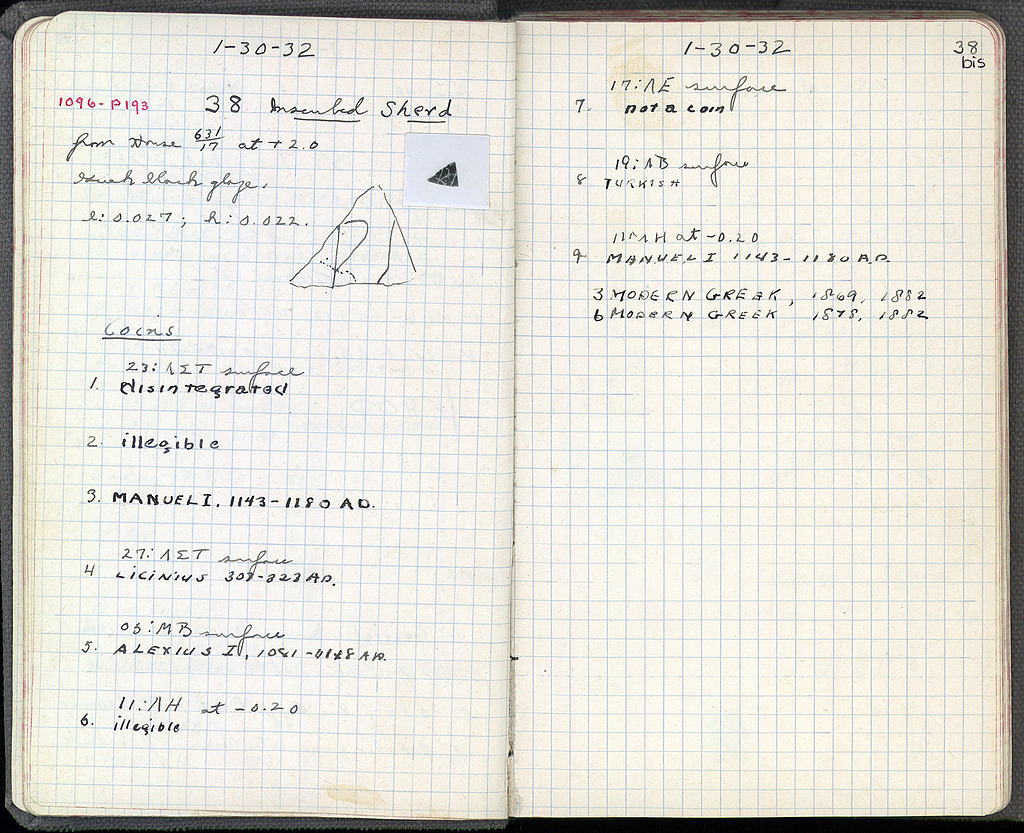 1-30-32
1096-P193 38 Inscribed Sherd
from House 631/17 at + 2.0
black glaze.
l: 0.027; h: 0.022.
Coins
23: ΛΣΤ surface
1. disintegrated
2. illegible
3. MANUEL I, 1143-1180 AD.
27: ΛΣΤ surface
4 LICINIUS AD.
05: MB surface
5. ALEXIUS I, AD.
11: ΛΗ at -0.20
6. illegible
1-30-32
38
bis
17: ΛΕ surface
7. not a coin
19: ΛΒ surface
8 TURKISH
11: ΛΗ at -0.20
9 MANUEL I 1143-1180 AD.
3 MODERN GREEK, 1869, 1882
6 MODERN GREEK 1878, 1882